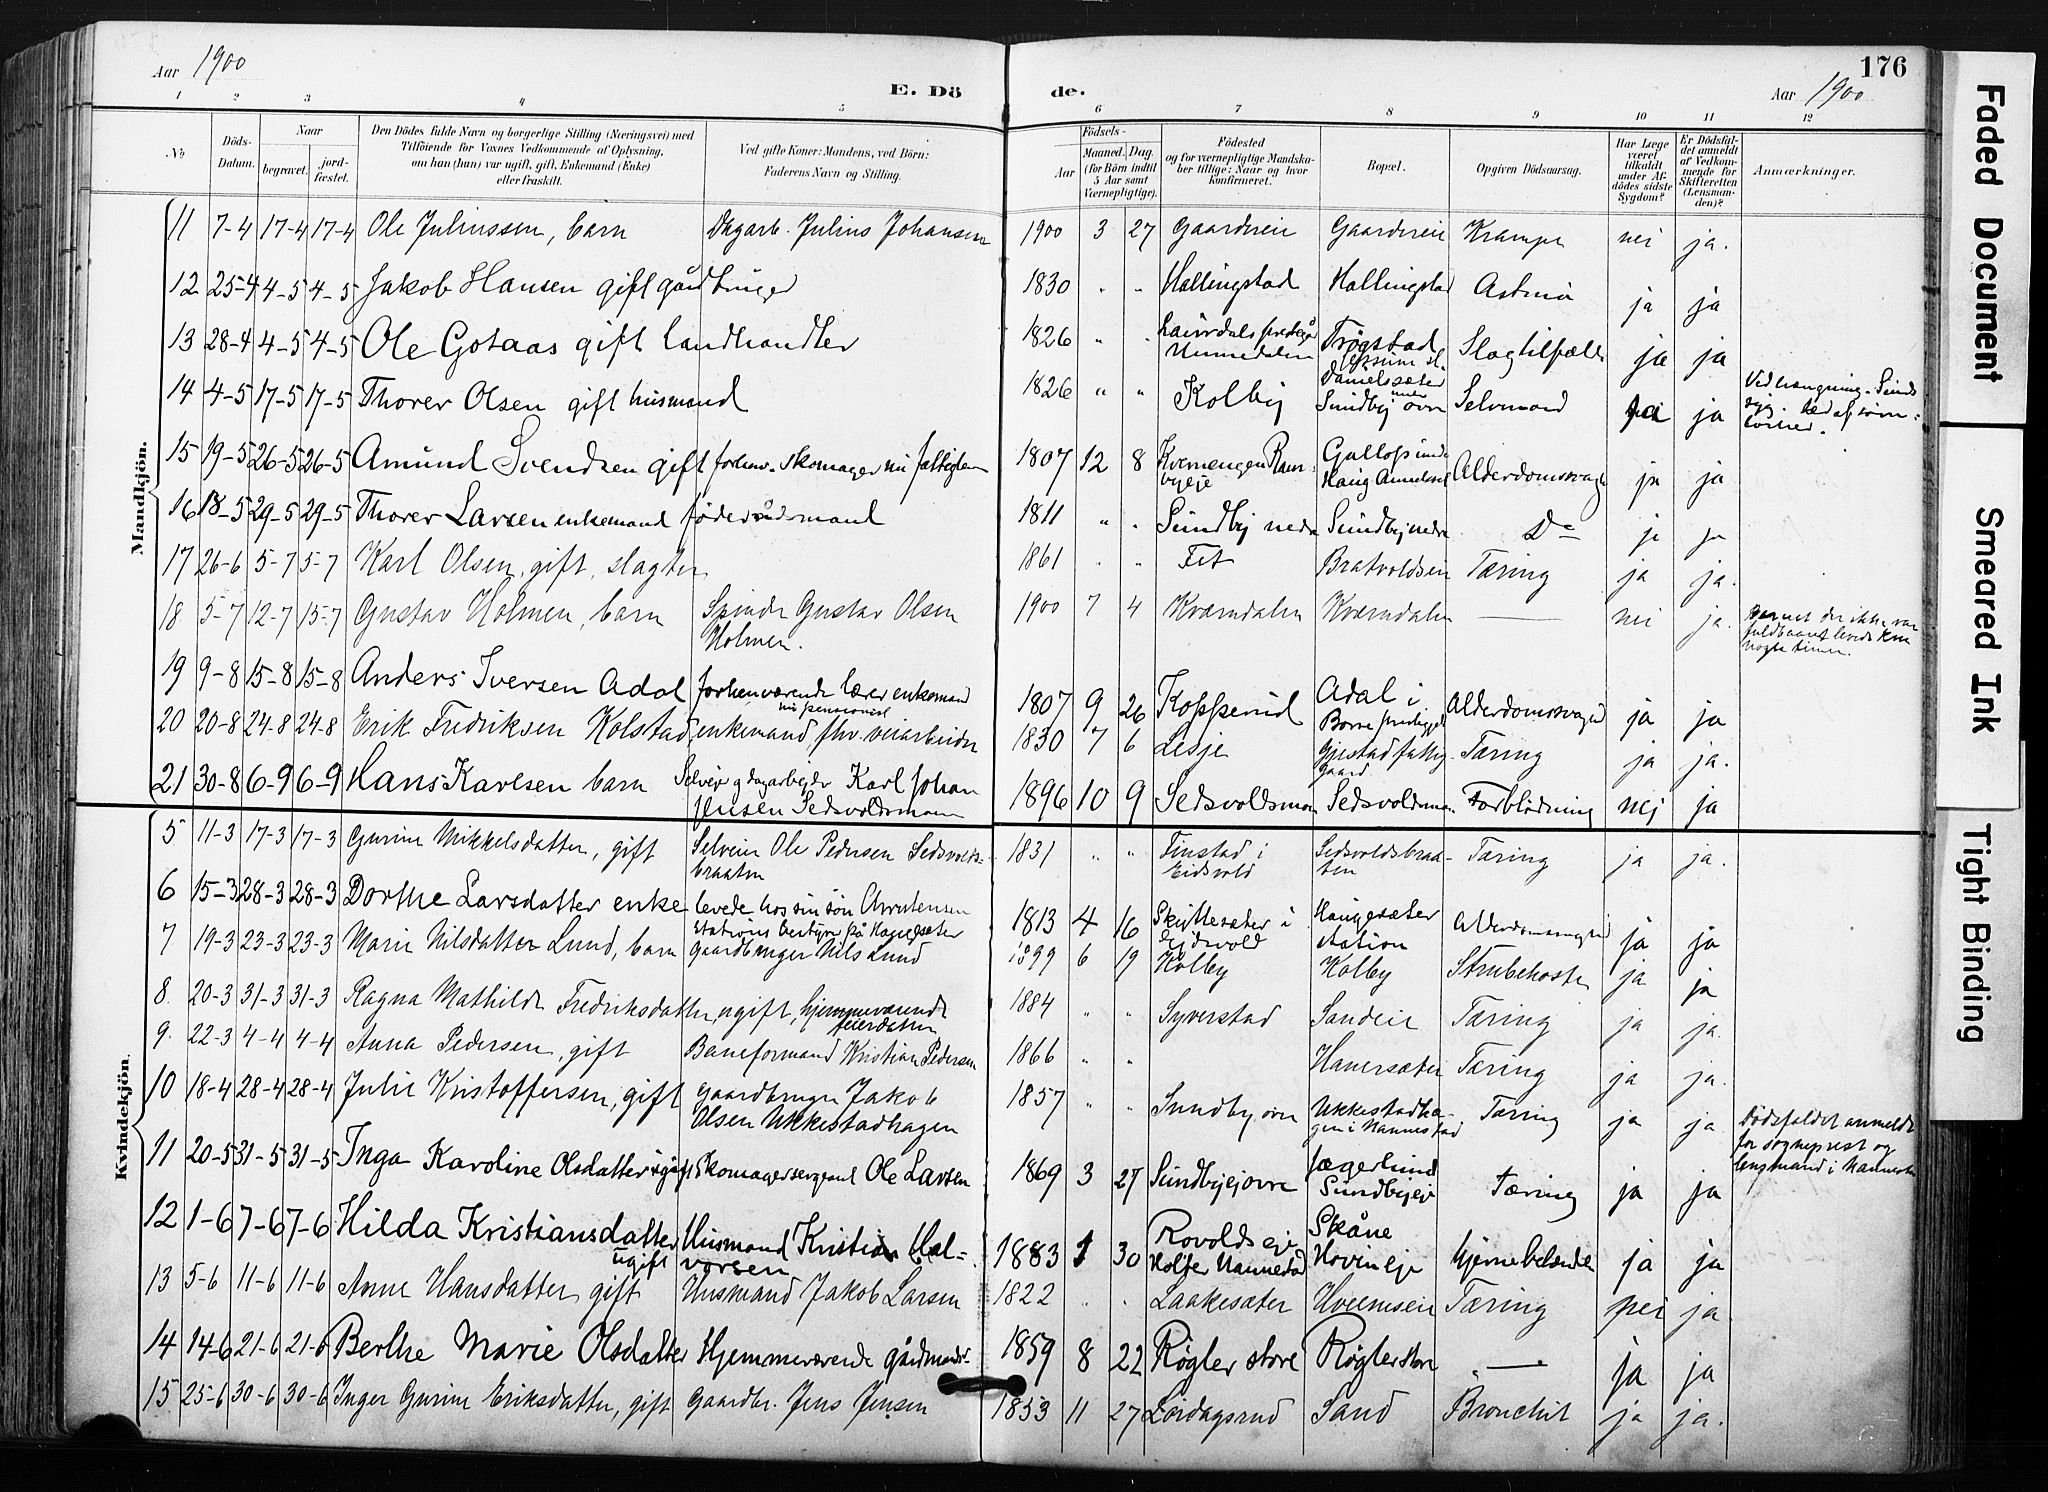 Aar 1900
E. Dö de.
176
Aar 1900
1 2 3 4 5 6 7 8 9 10 11 12
No
Döds-Datum.
Naar
begravet.
jord-fæstet.
Den Dödes fulde Navn og borgerlige Stilling (Næringsvei) med
Tilföiende for Voxnes Vedkommende af Oplysning,
om han (hun) var ugift, gift, Enkemand (Enke)
eller fraskilt.
Ved gifte Koner: Mandens, ved Börn:
Faderens Navn og Stilling.
Födsels-
Aar
Maaned. Dag.
(for Börn indtil
5 Aar samt
Værnepligtige).
Födested
og for værnepligtige Mandska-
ber tillige: Naar og hvor
konfirmeret.
Bopæl.
Opgiven Dödsaarsag.
Har Læge
været
tilkaldt
under Af-
dödes sidste
Sygdom?
Er Dödsfal-
det anmeldt
af Vedkom-
mende for
Skifteretten
(Lensman-
den)?
Anmærkninger.
Mandkjön.
11 7-4 17-4 17-4 Ole Juliussen, barn Dagarb. Julius Johansen 1900 3 27 Gaardereie Gaardereie Krampe nei ja.
12 25-4 4-5 4-5 Jakob Hansen gift gårdbruger 1830 " " Hallingstad Hallingstad Astma ja ja
13 28-4 4-5 4-5 Ole Gotaas gift landhandler 1826 " " Trøgstad Slagtilfælde ja ja
14 4-5 17-5 17-5 Thorer Olsen gift husmand 1826 " " Kolby Danielsæter under Sundby øvre Selvmord ja ja
Ved hængning. Sinds
15 19-5 26-5 26-5 Amund Svendsen gift forhenv. skomager nu fattiglem 1807 12 8 Alderdomssvaghed ja ja
16 18-5 29-5 29-5 Thorer Larsen enkemand føderådsmand 1811 " " Sundby nedre Sundby nedre Do ja ja
17 26-6 5-7 5-7 Karl Olsen, gift, slagter 1861 " " Fet Bratvoldseie Tæring ja ja.
18 5-7 12-7 15-7 Gustav Holmen, barn Snedk. Gustav Olsen
Holmen. 1900 7 4 Kværndalen Kværndalen — nei ja.
Barnet der ikke var
fuldbaaret levede kun
nogle timer.
19 9-8 15-8 15-8 Anders Iversen Adal forhenværende lærer enkemand
nu pensionist 1807 9 26 Kopperud Adal i
Borre prestegjeld Alderdomssvaghed ja ja
20 20-8 24-8 24-8 Erik Fredriksen Kolstad, enkemand, fhv. veiarbeider 1830 7 6 Lesje Gjestad fattig-
gaard Tæring ja ja.
21 30-8 6-9 6-9 Hans Karlsen barn Selveier og dagarbejder Karl Johan
Jensen Sedsvoldsmoen 1896 10 9 Sedsvoldsmoen Sedsvoldsmoen Forblödning nej ja
Kvindekjön.
5 11-3 17-3 17-3 Gurine Mikkelsdatter, gift Selveier Ole Pedersen Sedsvolds-
braaten 1831 " " Finstad i
Eidsvold Sedsvoldsbraa-
ten Tæring ja ja.
6 15-3 28-3 28-3 Dorthe Larsdatter enke levede hos sin søn
Stations bestyrer på Haugesæter 1813 4 16 Skyttesæter i
Eidsvold Haugesæter
station Alderdomssvaghed ja ja
7 19-3 23-3 23-3 Marie Nilsdatter Lund, barn gaardbruger Nils Lund 1899 6 19 Kolby Kolby Strubehoste ja ja
8. 20-3 31-3 31-3 Ragna Mathilde Fredriksdatter, ugift, hjemmeværende
eierdatter 1884 " " Syverstad Sandeie Tæring ja ja.
9. 22-3 4-4 4-4 Anna Pedersen, gift Baneformand Kristian Pedersen 1866 " " Hauersæter Tæring ja ja.
10 18-4 28-4 28-4 Julie Kristoffersen, gift gaardbruger Jakob
Olsen Ukkestadhagen 1857 " " Sundby øvre Ukkestadha-
gen i Nannestad Tæring ja ja.
Dödsfaldet anmeldt
for sogneprest og
lensmand i Nannestad
11 20-5 31-5 31-5 Inga Karoline Olsdatter ugift Skomagersergeant Ole Larsen 1869 3 27 Sundbyejøvre Jægerlund
Sundbyeje Tæring ja ja
12 1-6 7-6 7-6 Hilda Kristiansdatter
ugift Husmand Kristian Hal-
vorsen 1883 1 30 Rovolds eje
Holter Nannestad Skåne
Hovin eje Hjernebetændelse ja ja
13 5-6 11-6 11-6 Anne Hansdatter gift Husmand Jakob Larsen 1822 " " Laakesæter Hveemseie Tæring nei ja.
14 14-6 21-6 21-6 Berthe Marie Olsdatter Hjemmeværende gårdmands- 1859 8 22 Røgler store Røgler store — ja ja
15 25-6 30-6 30-6 Inger Gurine Eriksdatter, gift Gaardbr. Jens Jensen 1853 11 27 Lørdagsrud Sand Bronchit ja ja.
Faded Document
Smeared Ink
Tight Binding